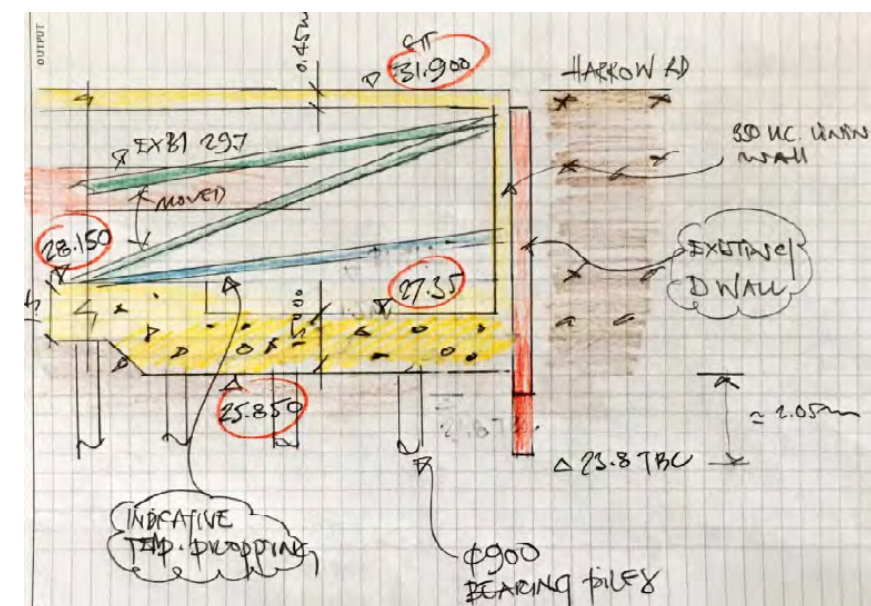 OUTPUT
0.45m
31.900
HARROW RD
EXBI 297
350 UC. LININ
WALL
MOVED
28.150
EXISTING
D WALL
27.35
25.850
≃ 2.05m
△ 23.8 TBC
INDICATIVE
TEMP. PROPPING
φ900
BEARING PILES